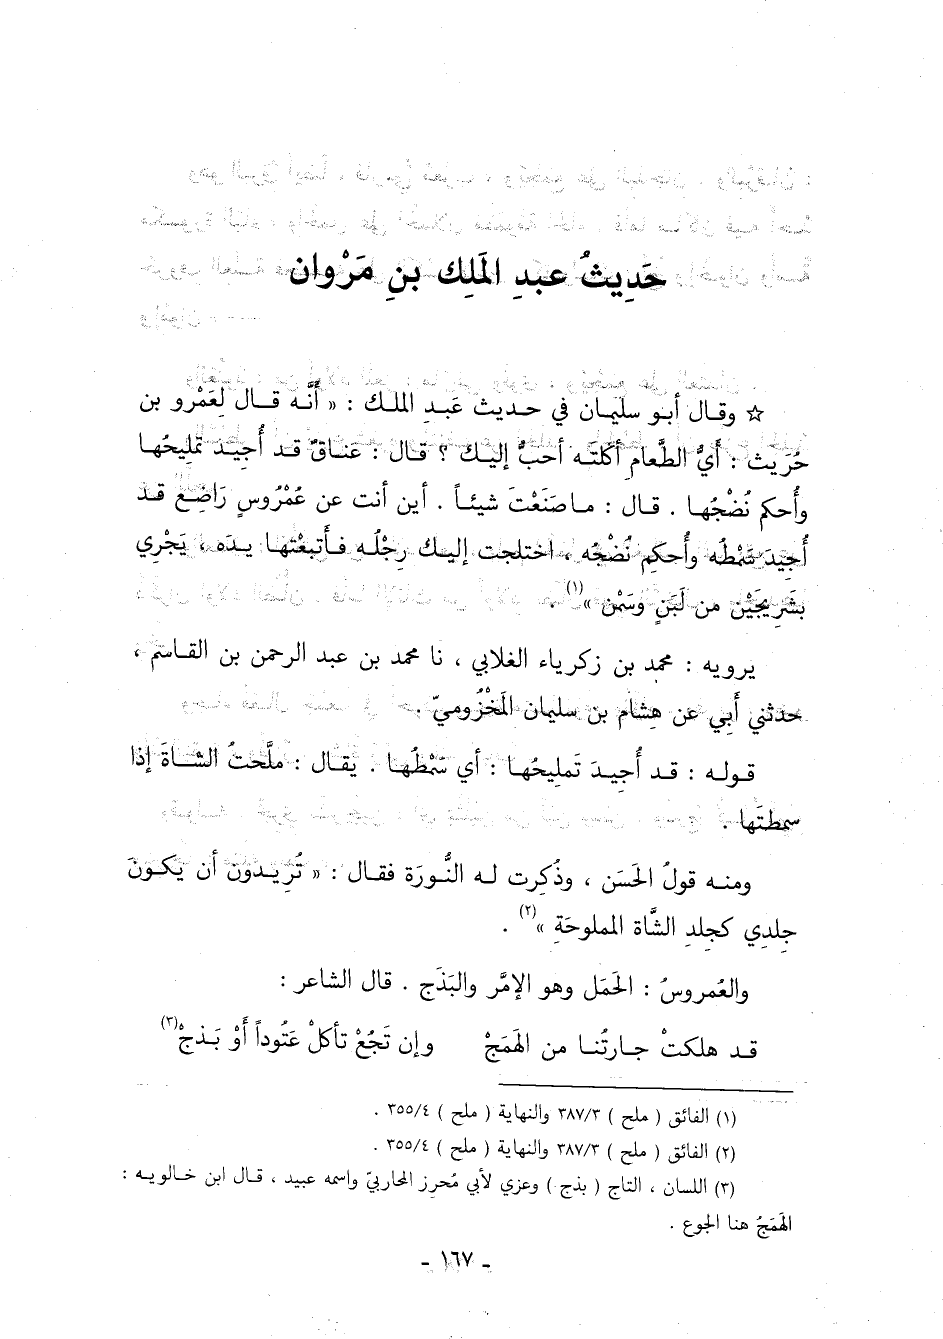 حَدِيثُ عبدِ المَلِك بنِ مَرْوان
☆ وقـال أبـو سليـمان في حـديث عَبـدِ الملـك : « أَنَّـه قـال لِعَمْرو بن
حُرَيث : أيُّ الطَّعام أكَلتَـه أحبُّ إليـك ؟ قـال : عَنـاقٌ قـد أُجِيـدَ تَمْلِيحُهـا
وأُحكم نُضْجُهـا . قـال : مـا صَنَعْتَ شيئـاً . أين أنت عن عُمْرُوسٍ رَاضِـعٍ قـد
أُجِيدَ سَمْطُه وأُحكِم نُضْجُـه ، اختلجت إليـك رِجْلُـه فـأَتبعْتهـا يـدَه ، يَجْرِي
بشَرِيجَيْن من لَبَنٍ وَسَمْن »(١) .
يرويه : محمد بن زكرياء الغلابي ، نا محمد بن عبد الرحمن بن القـاسم ،
حدثني أَبِي عن هِشام بن سليمان المَخْزُوميّ
قـولـه : قـد أُجِيـدَ تَمليحُهـا : أي سَمْطُهـا . يقـال : ملَّحتُ الشـاةَ إذا
سمطتَها .
ومنـه قولُ الحَسَن ، وذُكِرت لـه النُّـورَة فقـال : « تُرِيـدُون أن يَكـونَ
جِلدِي كجِلدِ الشَّاة المملوحَةِ »(٢) .
والعُمروسُ : الحَمَل وهو الإمَّر والبَذَج . قال الشاعر :
قـد هلكتْ جـارتُنـا من الهَمَجْ وإن تَجُعْ تأكلْ عَتُوداً أوْ بَـذجْ(٣)
(١) الفائق ( ملح ) ٣٨٧/٣ والنهاية ( ملح ) ٣٥٥/٤ .
(٢) الفائق ( ملح ) ٣٨٧/٣ والنهاية ( ملح ) ٣٥٥/٤ .
(٣) اللسان ، التاج ( بذج ) وعزي لأبي مُحرِز المحاربيّ واسمه عبيد ، قـال ابن خـالويـه :
الهَمَجُ هنا الجوع .
- ١٦٧ -